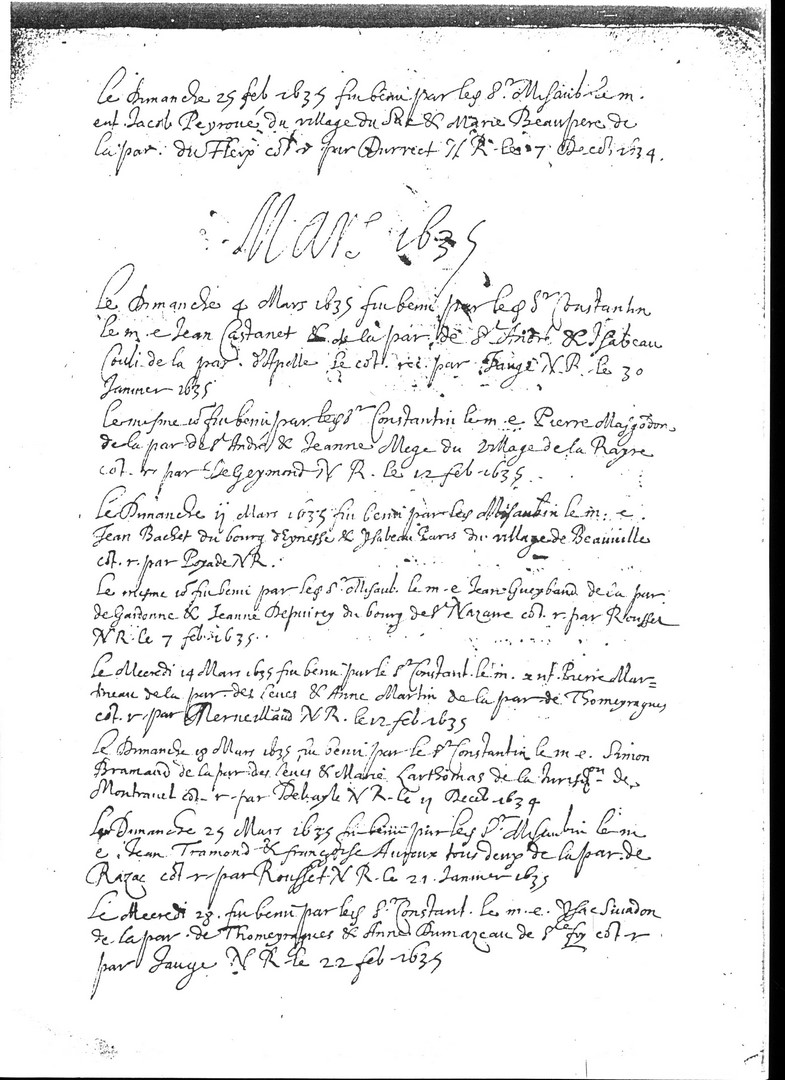 Le Dimanche 25 feb 1635 fu beni par led Sr Misaubin le m.
ent. Jacob Peyroue du village du & Marie Beaupere de
la par. du Fleix cot r par Durrect N R. le 7 Decēb 1634.
Mars 1635
Le Dimanche 4 Mars 1635 fu beni par led Sr Constantin
le m e Jean Castanet & de la par. de St André & Isabeau
Couli de la par. d'Apelle le cot. rec. par Jauge N.R. le 30
Janvier 1635
Le mesme io fu beni par led Sr Constantin le m e Pierre
de la par de St André & Jeanne Mege du village de la Rayre
cot. r par Geymond N R. le 12 feb 1635
Le Dimanche 11 Mars 1635 fu beni par led Misaubin le m. e.
Jean Bachet du bourg d'Eynesse & Isabeau Paris du village de Beauville
cot. r. par Poyade N R.
Le mesme io fu beni par led Sr Misaub. le m e Jean Gueyband de la par
de Gardonne & Jeanne du bourg de St Nazaire cot. r. par Rousset
N R. le 7 feb. 1635.
Le Mecredi 14 Mars 1635 fu beni par le Sr Constant. le m. ent. Pierre Mar=
tineau de la par. des Leues & Anne Martin de la par. de Thomeyragues
cot. r. par Merveillaud N R. le 12 feb 1635
Le Dimanche 18 Mars 1635 fu beni par le Sr Constantin le m e. Simon
Bramaud de la par. des Leues & Marie Larthomas de la Jurisdon de
Montravel cot. r. par Debayle N R. le 11 Deceb 1634
Le Dimanche 25 Mars 1635 fu beni par led Sr Misaubin le m
e. Jean Tramond & françoise Auroux tous deux de la par. de
Razac cot r. par Rousset N R. le 21. Janvier 1635
Le Mecredi 28. fu beni par led Sr Constant. le m. e. Isac Sivadon
de la par. de Thomeyragues & Anne Dumazeau de Ste foy cot. r
par Jauge N R. le 22 feb 1635